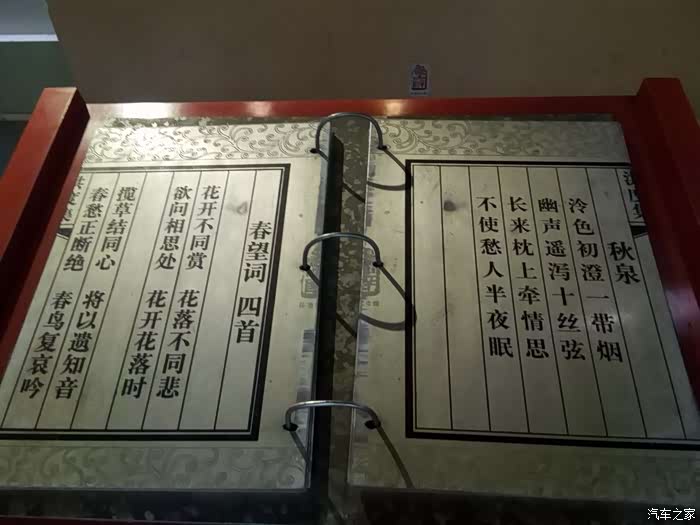 秋泉
泠色初澄一带烟
幽声遥泻十丝弦
长来枕上牵情思
不使愁人半夜眠
春望词 四首
花开不同赏 花落不同悲
欲问相思处 花开花落时
揽草结同心 将以遗知音
春愁正断绝 春鸟复哀吟
汽车之家